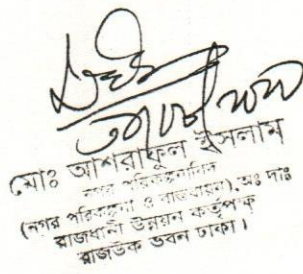 মোঃ আশরাফুল ইসলাম
নগর পরিকল্পনাবিদ
(নগর পরিকল্পনা ও বাস্তবায়ন), অঃ দাঃ
রাজধানী উন্নয়ন কর্তৃপক্ষ
রাজউক ভবন ঢাকা।